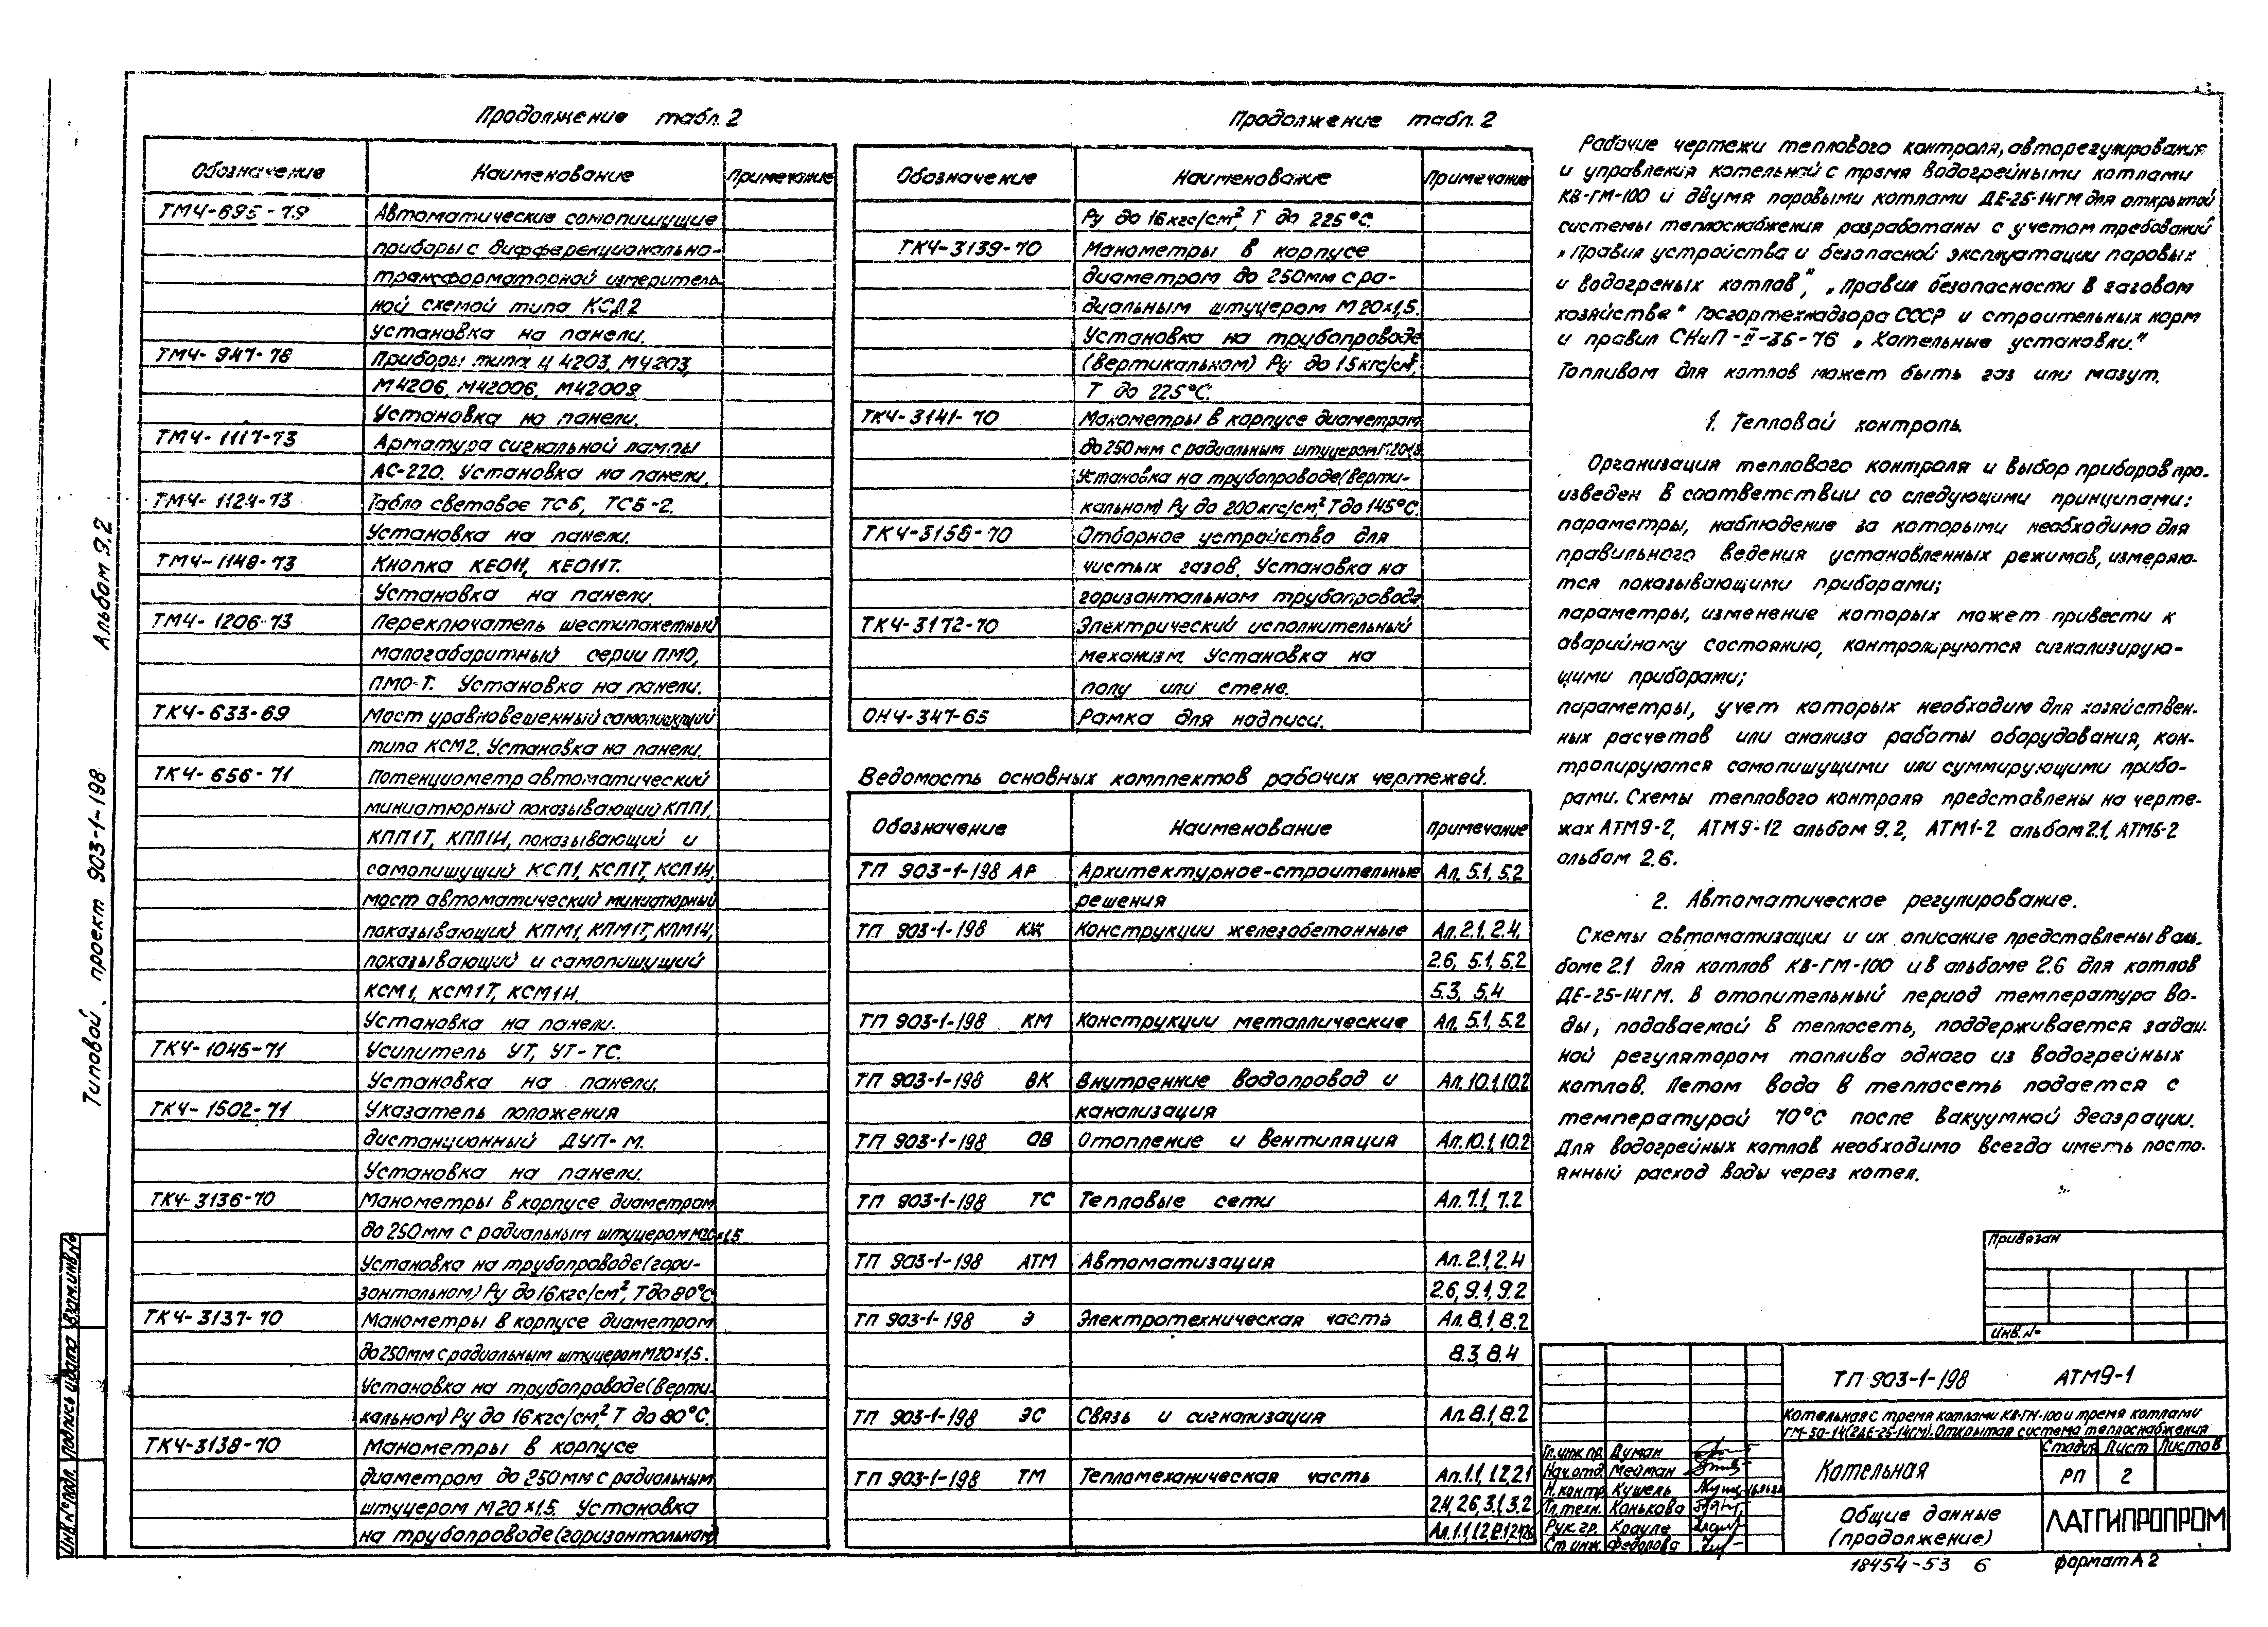 Продолжение табл. 2
Обозначение Наименование Примечание
ТМ4-695-79 Автоматические самопишущие
приборы с дифференциально-
трансформаторной измеритель
ной схемой типа КСД2
Установка на панели.
ТМ4-947-78 Приборы типа Ц 4203, М4203,
М4206, М42006, М42008
Установка на панели.
ТМ4-1117-73 Арматура сигнальной лампы
АС-220. Установка на панели.
ТМ4-1124-73 Табло световое ТСБ, ТСБ-2.
Установка на панели.
ТМ4-1148-73 Кнопка КЕ011, КЕ011Т.
Установка на панели.
ТМ4-1206-73 Переключатель шестипакетный
малогабаритный серии ПМО,
ПМО-Т. Установка на панели.
ТК4-633-69 Мост уравновешенный самопишущий
типа КСМ2. Установка на панели.
ТК4-656-71 Потенциометр автоматический
миниатюрный показывающий КПП1,
КПП1Т, КПП1И, показывающий и
самопишущий КСП1, КСП1Т, КСП1И,
мост автоматический миниатюрный
показывающий КПМ1, КПМ1Т, КПМ1И,
показывающий и самопишущий
КСМ1, КСМ1Т, КСМ1И.
Установка на панели.
ТК4-1045-71 Усилитель УТ, УТ-ТС.
Установка на панели.
ТК4-1502-71 Указатель положения
дистанционный ДУП-М.
Установка на панели.
ТК4-3136-70 Манометры в корпусе диаметром
до 250мм с радиальным штуцером М20×1,5
Установка на трубопроводе (гори-
зонтальном) Ру до 16 кгс/см², Т до 80°С.
ТК4-3137-70 Манометры в корпусе диаметром
до 250мм с радиальным штуцером М20×1,5.
Установка на трубопроводе (верти-
кальном) Ру до 16 кгс/см², Т до 80°С.
ТК4-3138-70 Манометры в корпусе
диаметром до 250 мм с радиальным
штуцером М20×1,5. Установка
на трубопроводе (горизонтальном)
Продолжение табл. 2
Обозначение Наименование Примечание
Ру до 16 кгс/см², Т до 225°С.
ТК4-3139-70 Манометры в корпусе
диаметром до 250мм с ра-
диальным штуцером М20×1,5.
Установка на трубопроводе
(вертикальном) Ру до 15 кгс/см²,
Т до 225°С.
ТК4-3141-70 Манометры в корпусе диаметром
до 250 мм с радиальным штуцером
Установка на трубопроводе (верти-
кальном) Ру до 200 кгс/см², Т до 145°С.
ТК4-3156-70 Отборное устройство для
чистых газов. Установка на
горизонтальном трубопроводе
ТК4-3172-70 Электрический исполнительный
механизм. Установка на
полу или стене.
ОН4-347-65 Рамка для надписи.
Ведомость основных комплектов рабочих чертежей.
Обозначение Наименование Примечание
ТП 903-1-198 АР Архитектурное-строительные Ал. 5.1, 5.2
решения
ТП 903-1-198 КЖ Конструкции железобетонные Ал. 2.1, 2.4,
2.6, 5.1, 5.2
5.3, 5.4
ТП 903-1-198 КМ Конструкции металлические Ал. 5.1, 5.2
ТП 903-1-198 ВК Внутренние водопровод и Ал. 10.1, 10.2
канализация
ТП 903-1-198 ОВ Отопление и вентиляция Ал. 10.1, 10.2
ТП 903-1-198 ТС Тепловые сети Ал. 7.1, 7.2
ТП 903-1-198 АТМ Автоматизация Ал. 2.1, 2.4
2.6, 9.1, 9.2
ТП 903-1-198 Э Электротехническая часть Ал. 8.1, 8.2
8.3, 8.4
ТП 903-1-198 ЭС Связь и сигнализация Ал. 8.1, 8.2
ТП 903-1-198 ТМ Тепломеханическая часть Ал. 1.1, 1.2, 2.1
2.4, 2.6, 3.1, 3.2
Рабочие чертежи теплового контроля, авторегулирования
и управления котельной с тремя водогрейными котлами
КВ-ГМ-100 и двумя паровыми котлами ДЕ-25-14ГМ для открытой
системы теплоснабжения разработаны с учетом требований
„Правил устройства и безопасной эксплуатации паровых
и водогреных котлов", „Правил безопасности в газовом
хозяйстве" Госгортехнадзора СССР и строительных норм
и правил СНиП-II-35-76 „Котельные установки."
Топливом для котлов может быть газ или мазут.
1. Тепловой контроль.
Организация теплового контроля и выбор приборов про-
изведен в соответствии со следующими принципами:
параметры, наблюдение за которыми необходимо для
правильного ведения установленных режимов, измеряю-
тся показывающими приборами;
параметры, изменение которых может привести к
аварийному состоянию, контролируются сигнализирую-
щими приборами;
параметры, учет которых необходим для хозяйствен-
ных расчетов или анализа работы оборудования, кон-
тролируются самопишущими или суммирующими прибо-
рами. Схемы теплового контроля представлены на черте-
жах АТМ9-2, АТМ9-12 альбом 9.2, АТМ1-2 альбом 2.1, АТМ5-2
альбом 2.6.
2. Автоматическое регулирование.
Схемы автоматизации и их описание представлены в аль-
боме 2.1 для котлов КВ-ГМ-100 и в альбоме 2.6 для котлов
ДЕ-25-14ГМ. В отопительный период температура во-
ды, подаваемой в теплосеть, поддерживается задан-
ной регулятором топлива одного из водогрейных
котлов. Летом вода в теплосеть подается с
температурой 70°С после вакуумной деаэрации.
Для водогрейных котлов необходимо всегда иметь посто-
янный расход воды через котел.
Привязан
Инв. №
ТП 903-1-198 АТМ9-1
Котельная с тремя котлами КВ-ГМ-100 и тремя котлами
ГМ-50-14 (2ДЕ-25-14ГМ). Открытая система теплоснабжения
Гл. инж. пр. Думан
Нач. отд. Мейман
Н. контр. Кушель
Гл. техн. Канькова
Рук. гр. Крауле
Ст. инж. Федолова
Котельная
Стадия Лист Листов
РП 2
Общие данные
(продолжение)
ЛАТГИПРОПРОМ
18454-53 6
формат А2
Типовой проект 903-1-198 Альбом 9.2
Инв. № подл. Подпись и дата Взам. инв. №